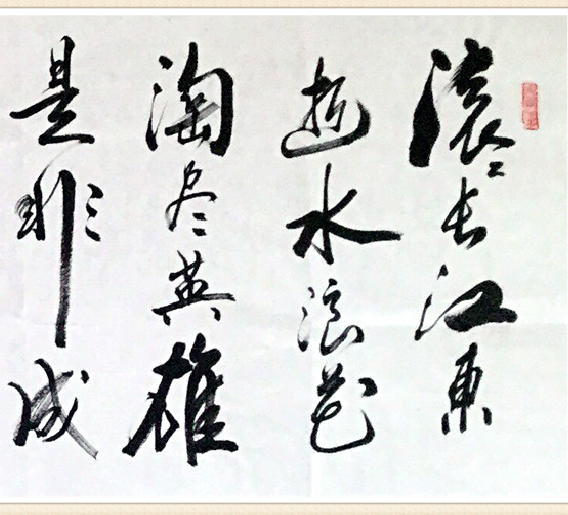 滚〻长江東
逝水浪花
淘尽英雄
是非成